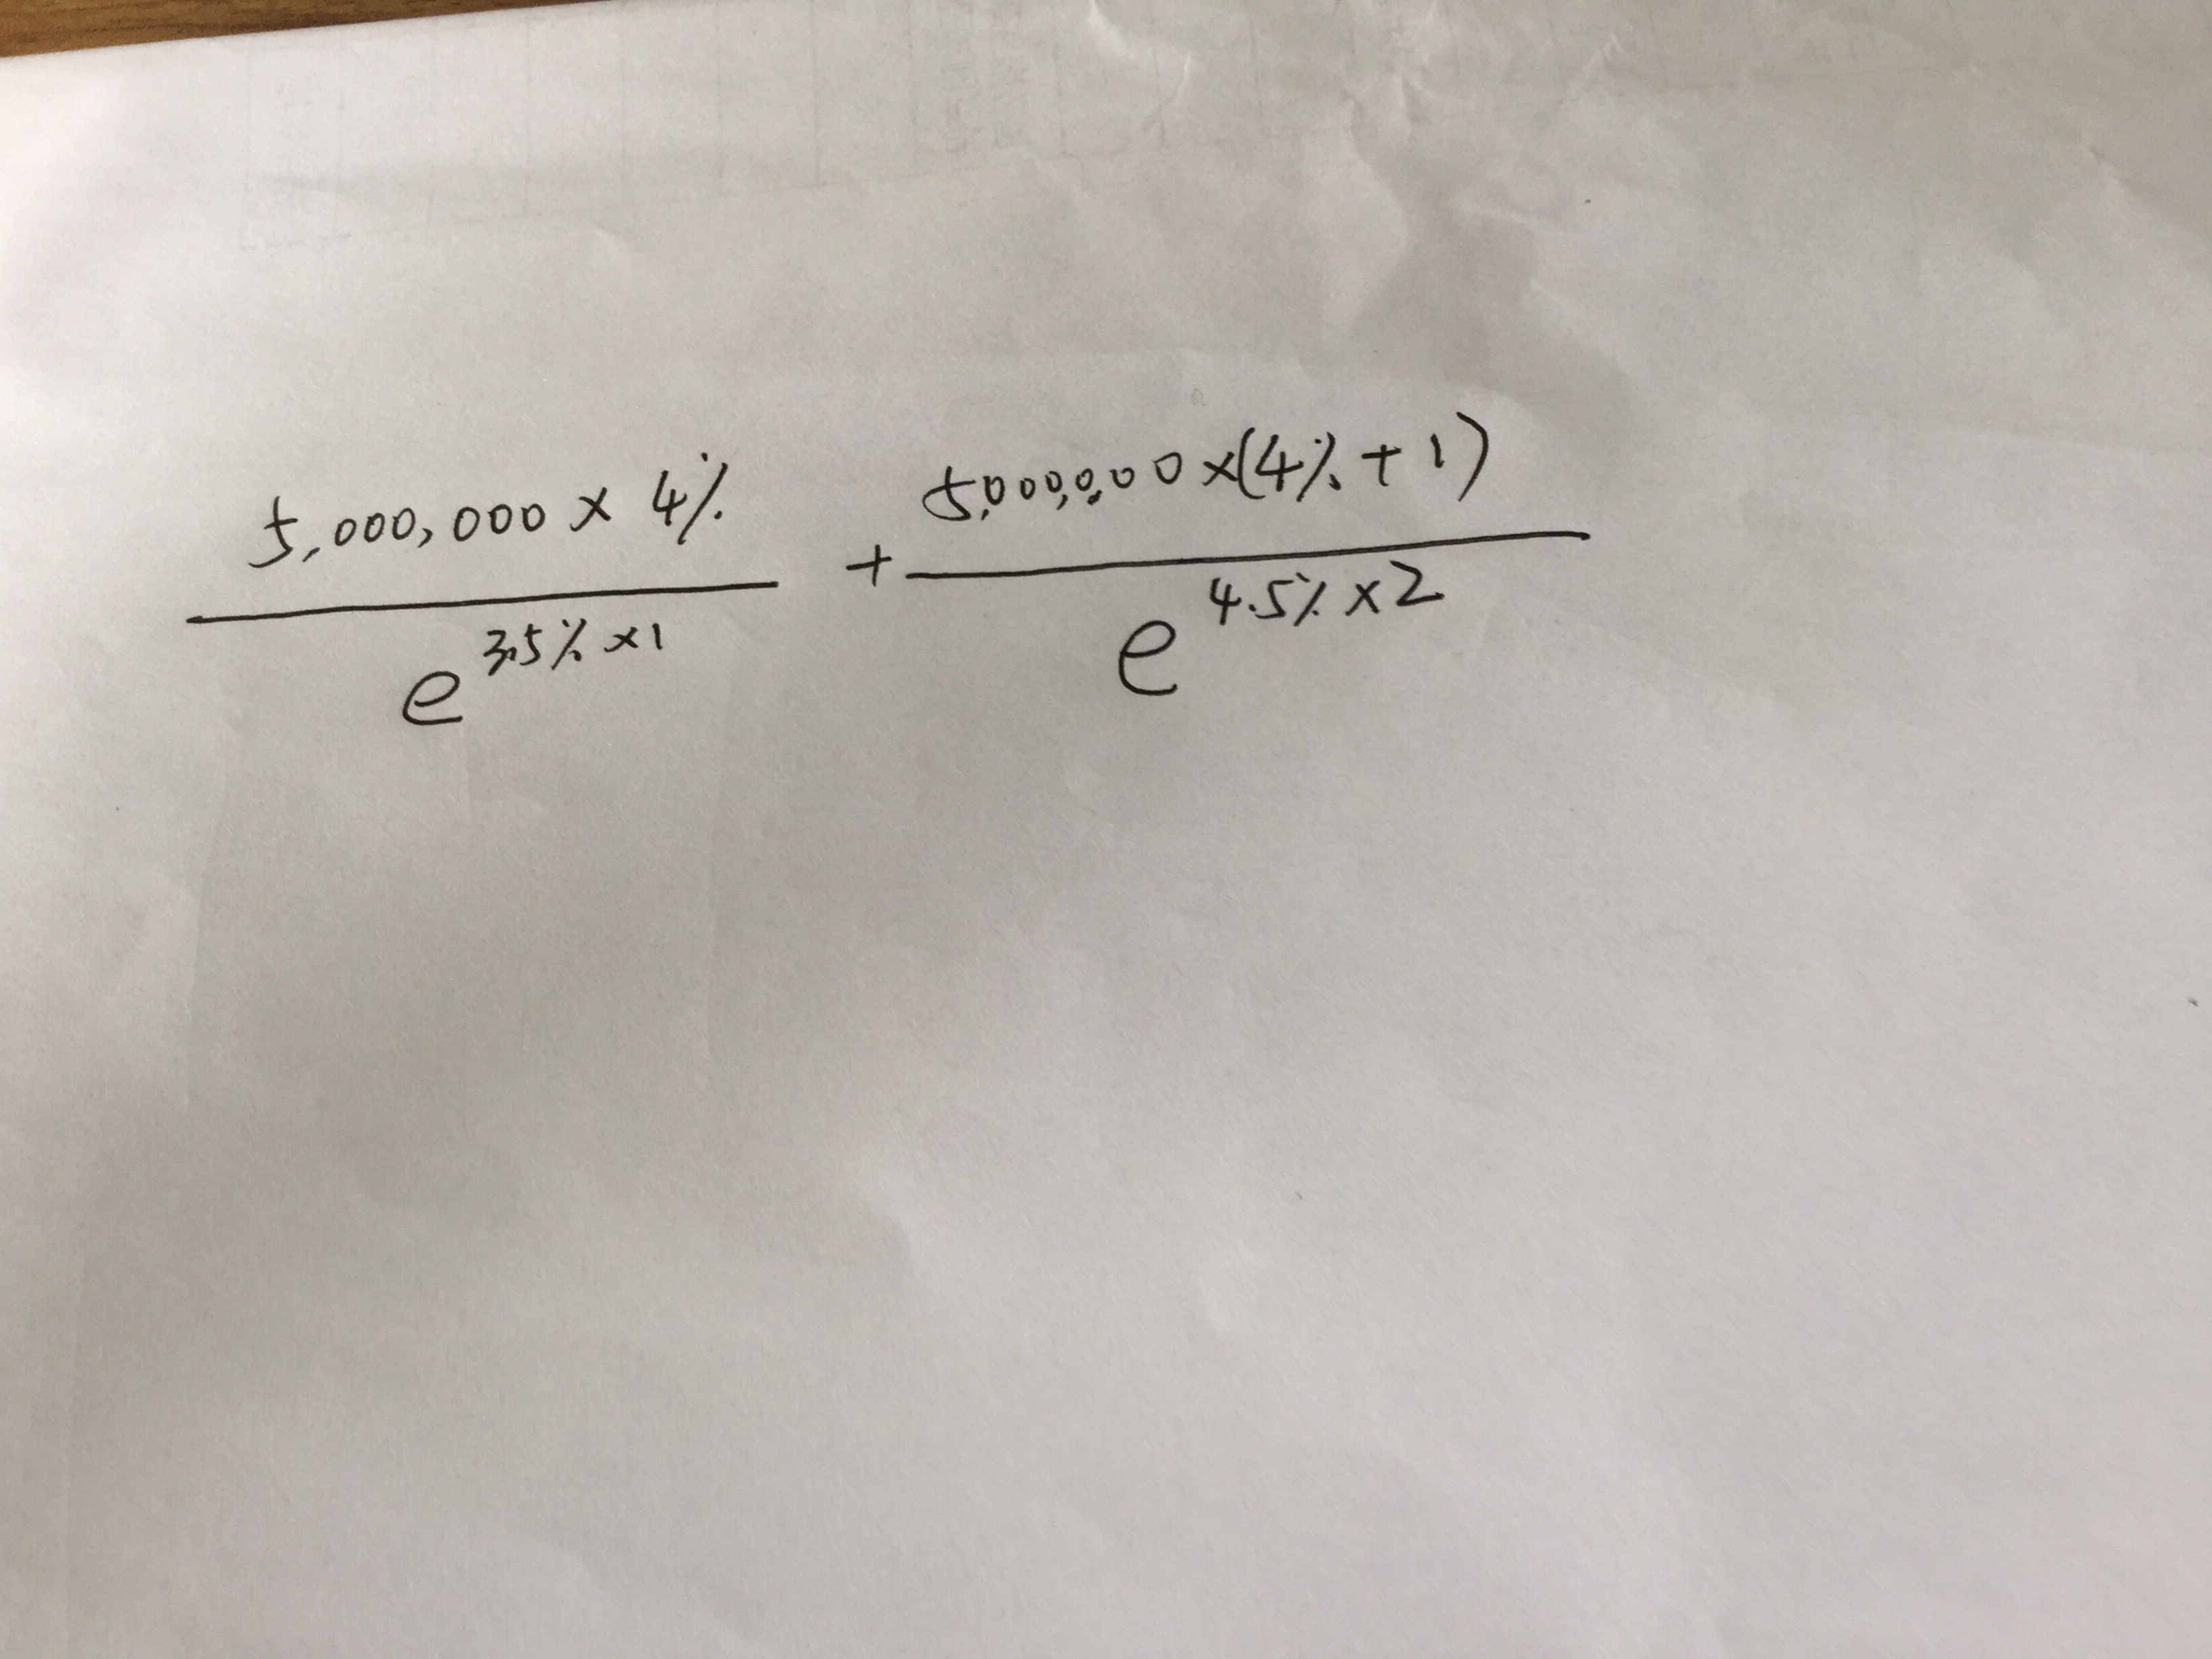 5,000,000 × 4% / e^{3.5% × 1} + 5,000,000 × (4% + 1) / e^{4.5% × 2}